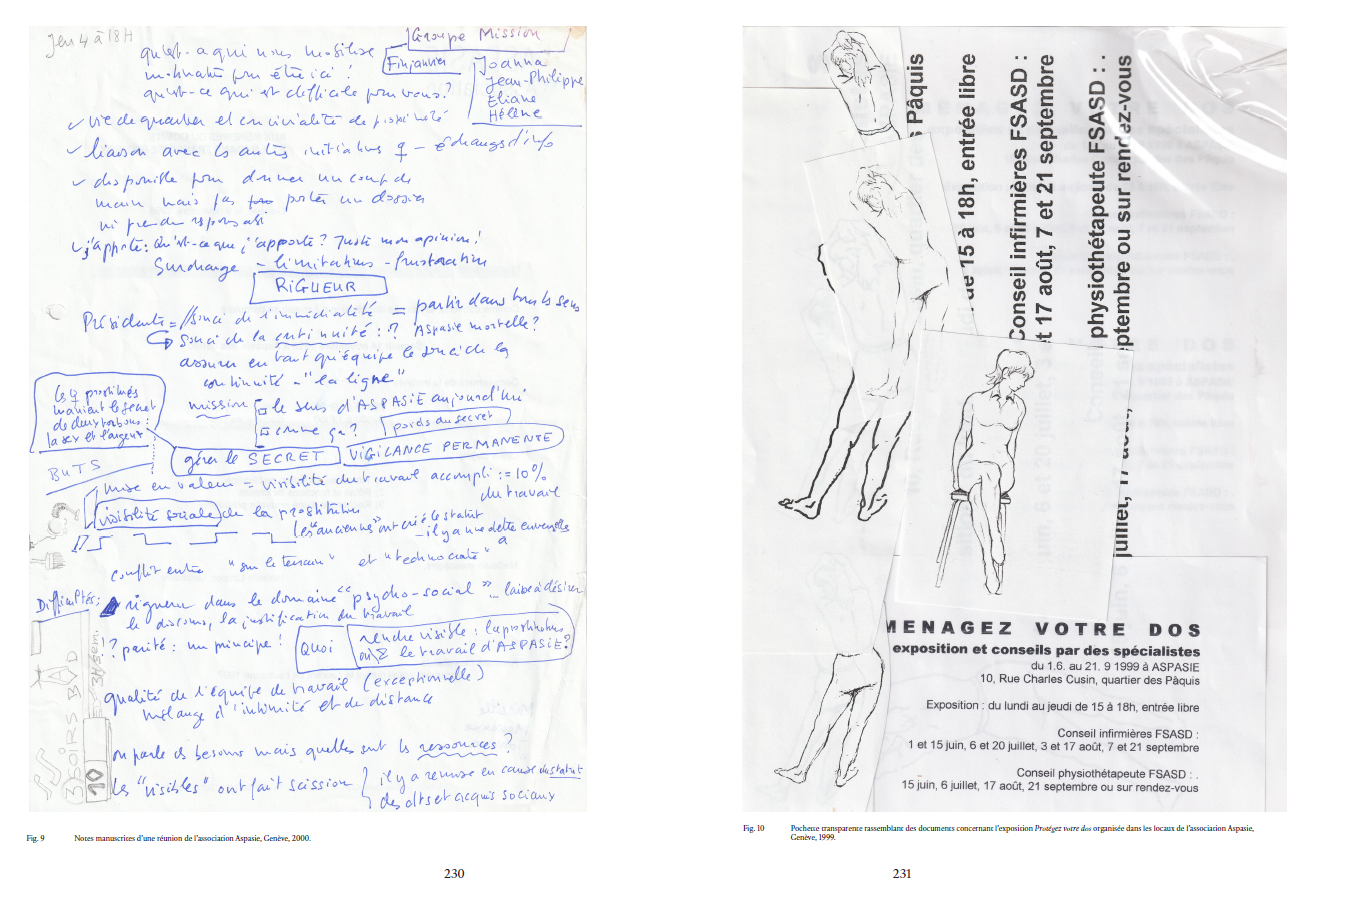 Jeu 4 à 18H
Groupe Mission
qu'est-ce qui nous mobilise
Fin janvier
motivation pour être ici !
qu'est-ce qui est difficile pour vous ?
Joanna
Jean-Philippe
Eliane
Hélène
vie de quartier et convivialité de proximité
liaison avec les autres initiatives ♀ - échanges d'info
disponible pour donner un coup de
main mais pas porter un dossier
ni prendre responsabi
j'apporte : Qu'est-ce que j'apporte ? Juste mon opinion !
Surcharge - limitations - frustration
RIGUEUR
Présidente = souci de l'immédiateté = partir dans tous les sens
souci de la continuité : ? Aspasie mortelle ?
assurer en tant qu'équipe le souci de la
continuité - "la ligne"
les ♀ prostituées
manient le secret
de deux tabous :
le sex et l'argent
mission
le sens d'ASPASIE aujourd'hui
comme ça ?
poids du secret
gérer le SECRET
VIGILANCE PERMANENTE
BUTS
mise en valeur = visibilité du travail accompli := 10%
du travail
visibilité sociale de la prostitution
les "anciennes" ont créé le statut
- il y a une dette envers elles
conflit entre "sur le terrain" et "technocrate"
Difficultés :
rigueur dans le domaine "psycho-social" - laisse à désirer
le discours, la justification du travail
!? parité : un principe !
Quoi
rendre visible : la prostitution
ou le travail d'ASPASIE ?
qualité de l'équipe de travail (exceptionnelle)
mélange d'intimité et de distance
on parle des besoins mais quelles sont les ressources ?
les "visibles" ont fait scission
il y a remise en cause du statut
des dts et acquis sociaux
10
Fig. 9 Notes manuscrites d'une réunion de l'association Aspasie, Genève, 2000.
230
Pâquis
de 15 à 18h, entrée libre
Conseil infirmières FSASD :
et 17 août, 7 et 21 septembre
physiothétapeute FSASD : .
juillet, 17 août, septembre ou sur rendez-vous
MENAGEZ VOTRE DOS
exposition et conseils par des spécialistes
du 1.6. au 21. 9 1999 à ASPASIE
10, Rue Charles Cusin, quartier des Pâquis
Exposition : du lundi au jeudi de 15 à 18h, entrée libre
Conseil infirmières FSASD :
1 et 15 juin, 6 et 20 juillet, 3 et 17 août, 7 et 21 septembre
Conseil physiothétapeute FSASD : .
15 juin, 6 juillet, 17 août, 21 septembre ou sur rendez-vous
Fig. 10 Pochette transparente rassemblant des documents concernant l'exposition Protégez votre dos organisée dans les locaux de l'association Aspasie,
Genève, 1999.
231